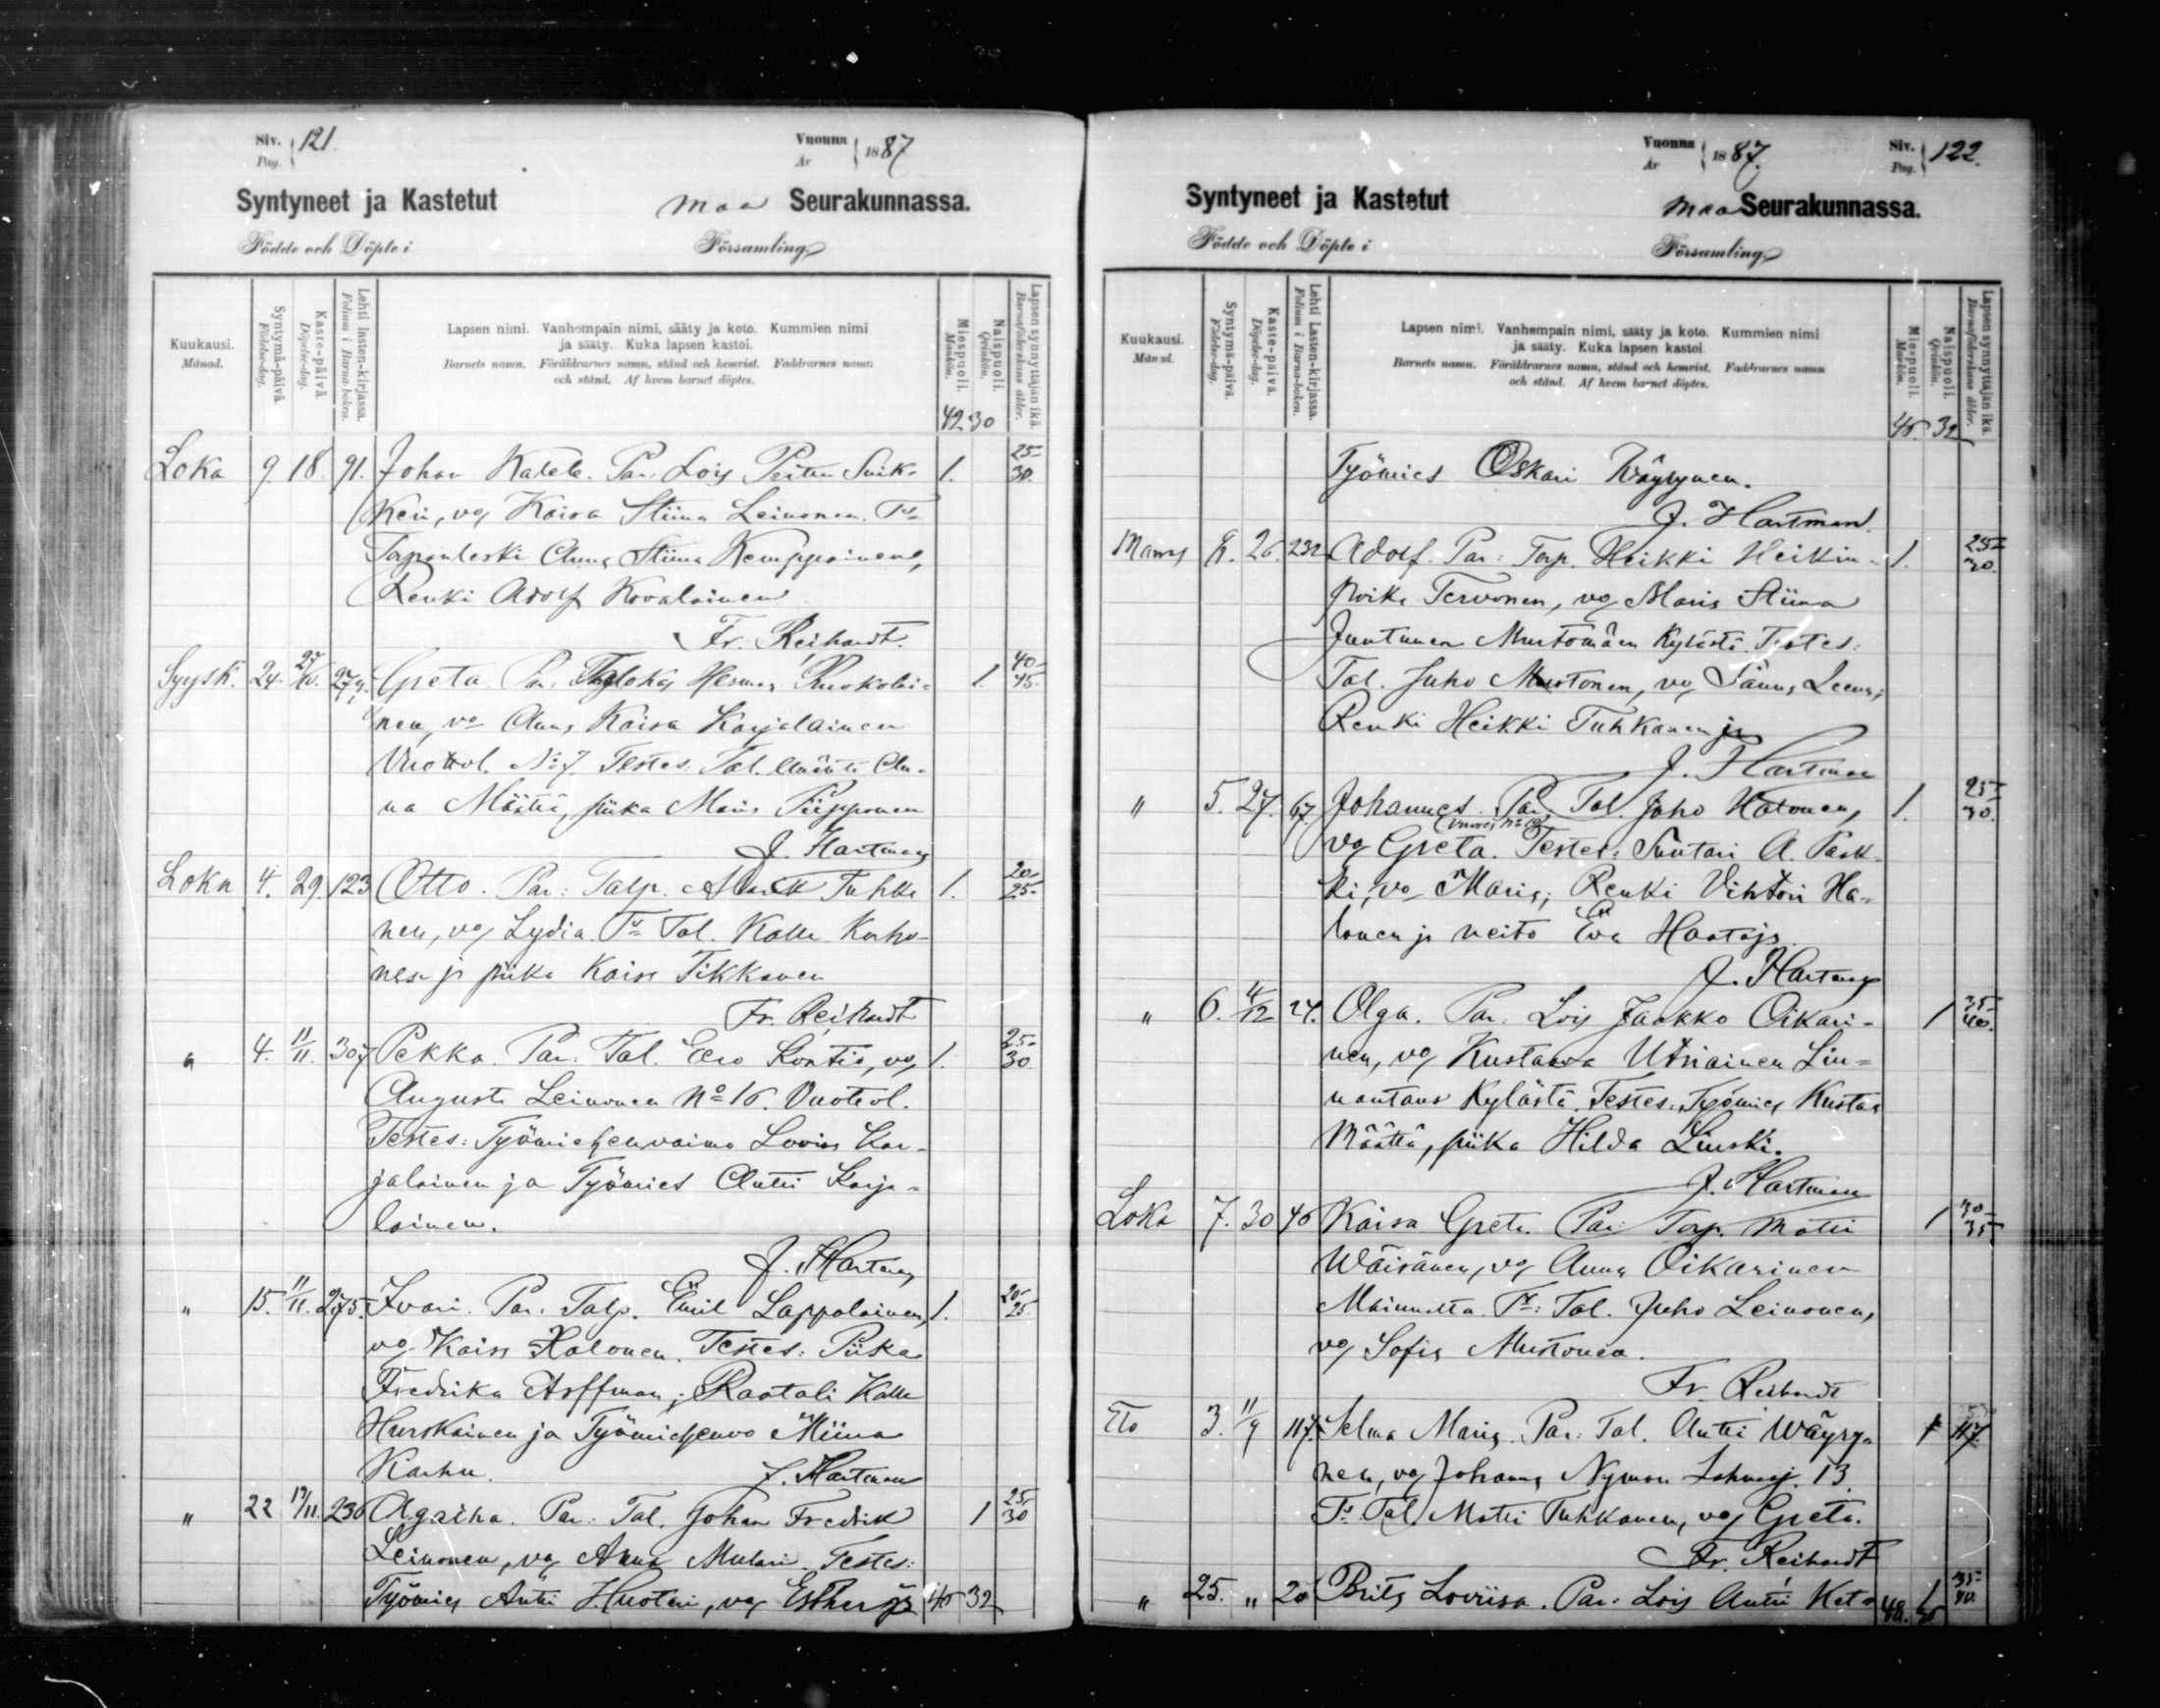 Siv. 121. Vuonna 1887
Pag. År
Syntyneet ja Kastetut maa Seurakunnassa.
Födde och Döpte i Församling
Kuukausi. Månad.
Syntymä-päivä. Födelse-dag.
Kaste-päivä. Döpelse-dag.
Lehti lasten-kirjassa. Folium i Barna-boken.
Lapsen nimi. Vanhempain nimi, sääty ja koto. Kummien nimi
ja sääty. Kuka lapsen kastoi.
Barnets namn. Föräldrarnes namn, stånd och hemvist. Faddrarnes namn
och stånd. Af hvem barnet döptes.
Miespuoli. Mankön.
Naispuoli. Qvinkön.
Lapsen synnyttäjän ikä. Barnaföderskans ålder.
42 30
Loka 9. 18. 91. Johan Kalele. Par. Lois Petter Suik- 1. 25-30.
Keri, vo Kaisa Stiina Leinonen. Ts
Torpanleski Anna Stiina Kemppainen,
Renki Adolf Kovalainen
Fr. Reihardt.
Syysk. 24. 27/10. 279. Greta. Par. Herman Ruokolai- 1. 40-45.
nen, vo Anna Kaisa Karjalainen
Vuottol. No 7. Testes: Tal. An-
na Määttä, piika Maria Piipponen
J. Hartman
Loka 4. 29. 123 Otto. Par: Talp. Tuhka 1. 20-25.
nen, vo Lydia. Ts Tal. Kalle Korho-
nen ja piika Kaisa Tikkanen
Fr. Reihardt
" 4. 11/11. 307 Pekka. Par: Tal. Eero Kontio, vo 1. 25-30
Augusta Leinonen No 16. Vuottol.
Testes: Työmiehenvaimo Lovisa Kar-
jalainen ja Työmies Antti Karja-
lainen.
J. Hartman
" 15. 11/11. 275. Ivari. Par. Talp. Emil Lappalainen, 1. 20-25.
vo Kaisa Halonen. Testes: Piika
Fredrika Arffman; Raatali Kalle
Hurskainen ja Työmiehenvo Miina
Karhu. J. Hartman
" 22 19/11. 236 Agatha. Par: Tal. Johan Fredrik 1 25-30
Leinonen, vo Anna Mulari. Testes:
Työmies Antti Huotari, vo Esther ja 45 32
Vuonna 1887. Siv. 122.
År Pag.
Syntyneet ja Kastetut maa Seurakunnassa.
Födde och Döpte i Församling
Kuukausi. Månad.
Syntymä-päivä. Födelse-dag.
Kaste-päivä. Döpelse-dag.
Lehti lasten-kirjassa. Folium i Barna-boken.
Lapsen nimi. Vanhempain nimi, sääty ja koto. Kummien nimi
ja sääty. Kuka lapsen kastoi.
Barnets namn. Föräldrarnes namn, stånd och hemvist. Faddrarnes namn
och stånd. Af hvem barnet döptes.
Miespuoli. Mankön.
Naispuoli. Qvinkön.
Lapsen synnyttäjän ikä. Barnaföderskans ålder.
45. 32
Työmies Oskari Wäyrynen.
J. Hartman.
Marras 26. 232 Adolf. Par: Torp. Heikki Heikin- 1. 25-30.
poika Tervonen, vo Maria Stiina
Juntunen Mustomäen Kylästä. Testes:
Tal. Juho Mustonen, vo Leena;
Renki Heikki Tuhkanen
J. Hartman
" 5. 27. 67. Johannes. Par. Tal. Juho Halonen, 1. 25-30.
vo Greta. Testes: Suutari A. Park-
ki, vo Maria; Renki Vihtori Ha-
lonen ja neito Eva Haataja
J. Hartman
" 6. 4/12 24. Olga. Par. Lois Jaakko Oikari- 1 35-40.
nen, vo Kustaava Utriainen Lin-
nantaus Kylästä. Testes: Työmies Kustaa
Määttä, piika Hilda Linski.
J. Hartman
Loka 7. 30 46 Kaisa Greta. Par: Torp. Matti 1 30-35
Wäisänen, vo Anna Oikarinen
Mainualta. Ts: Tal. Juho Leinonen,
vo Sofia Mustonen.
Fr. Reihardt
Elo 3. 11/9 117. Selma Maria. Par: Tal. Antti Wäyry- 1
nen, vo Johanna Nyman 13.
Ts Tal. Matti Tuhkanen, vo Greta.
Fr. Reihardt
" 25. " 20 Brita Loviisa. Par: Lois Antti Ket- 1 35-40.
48. 35